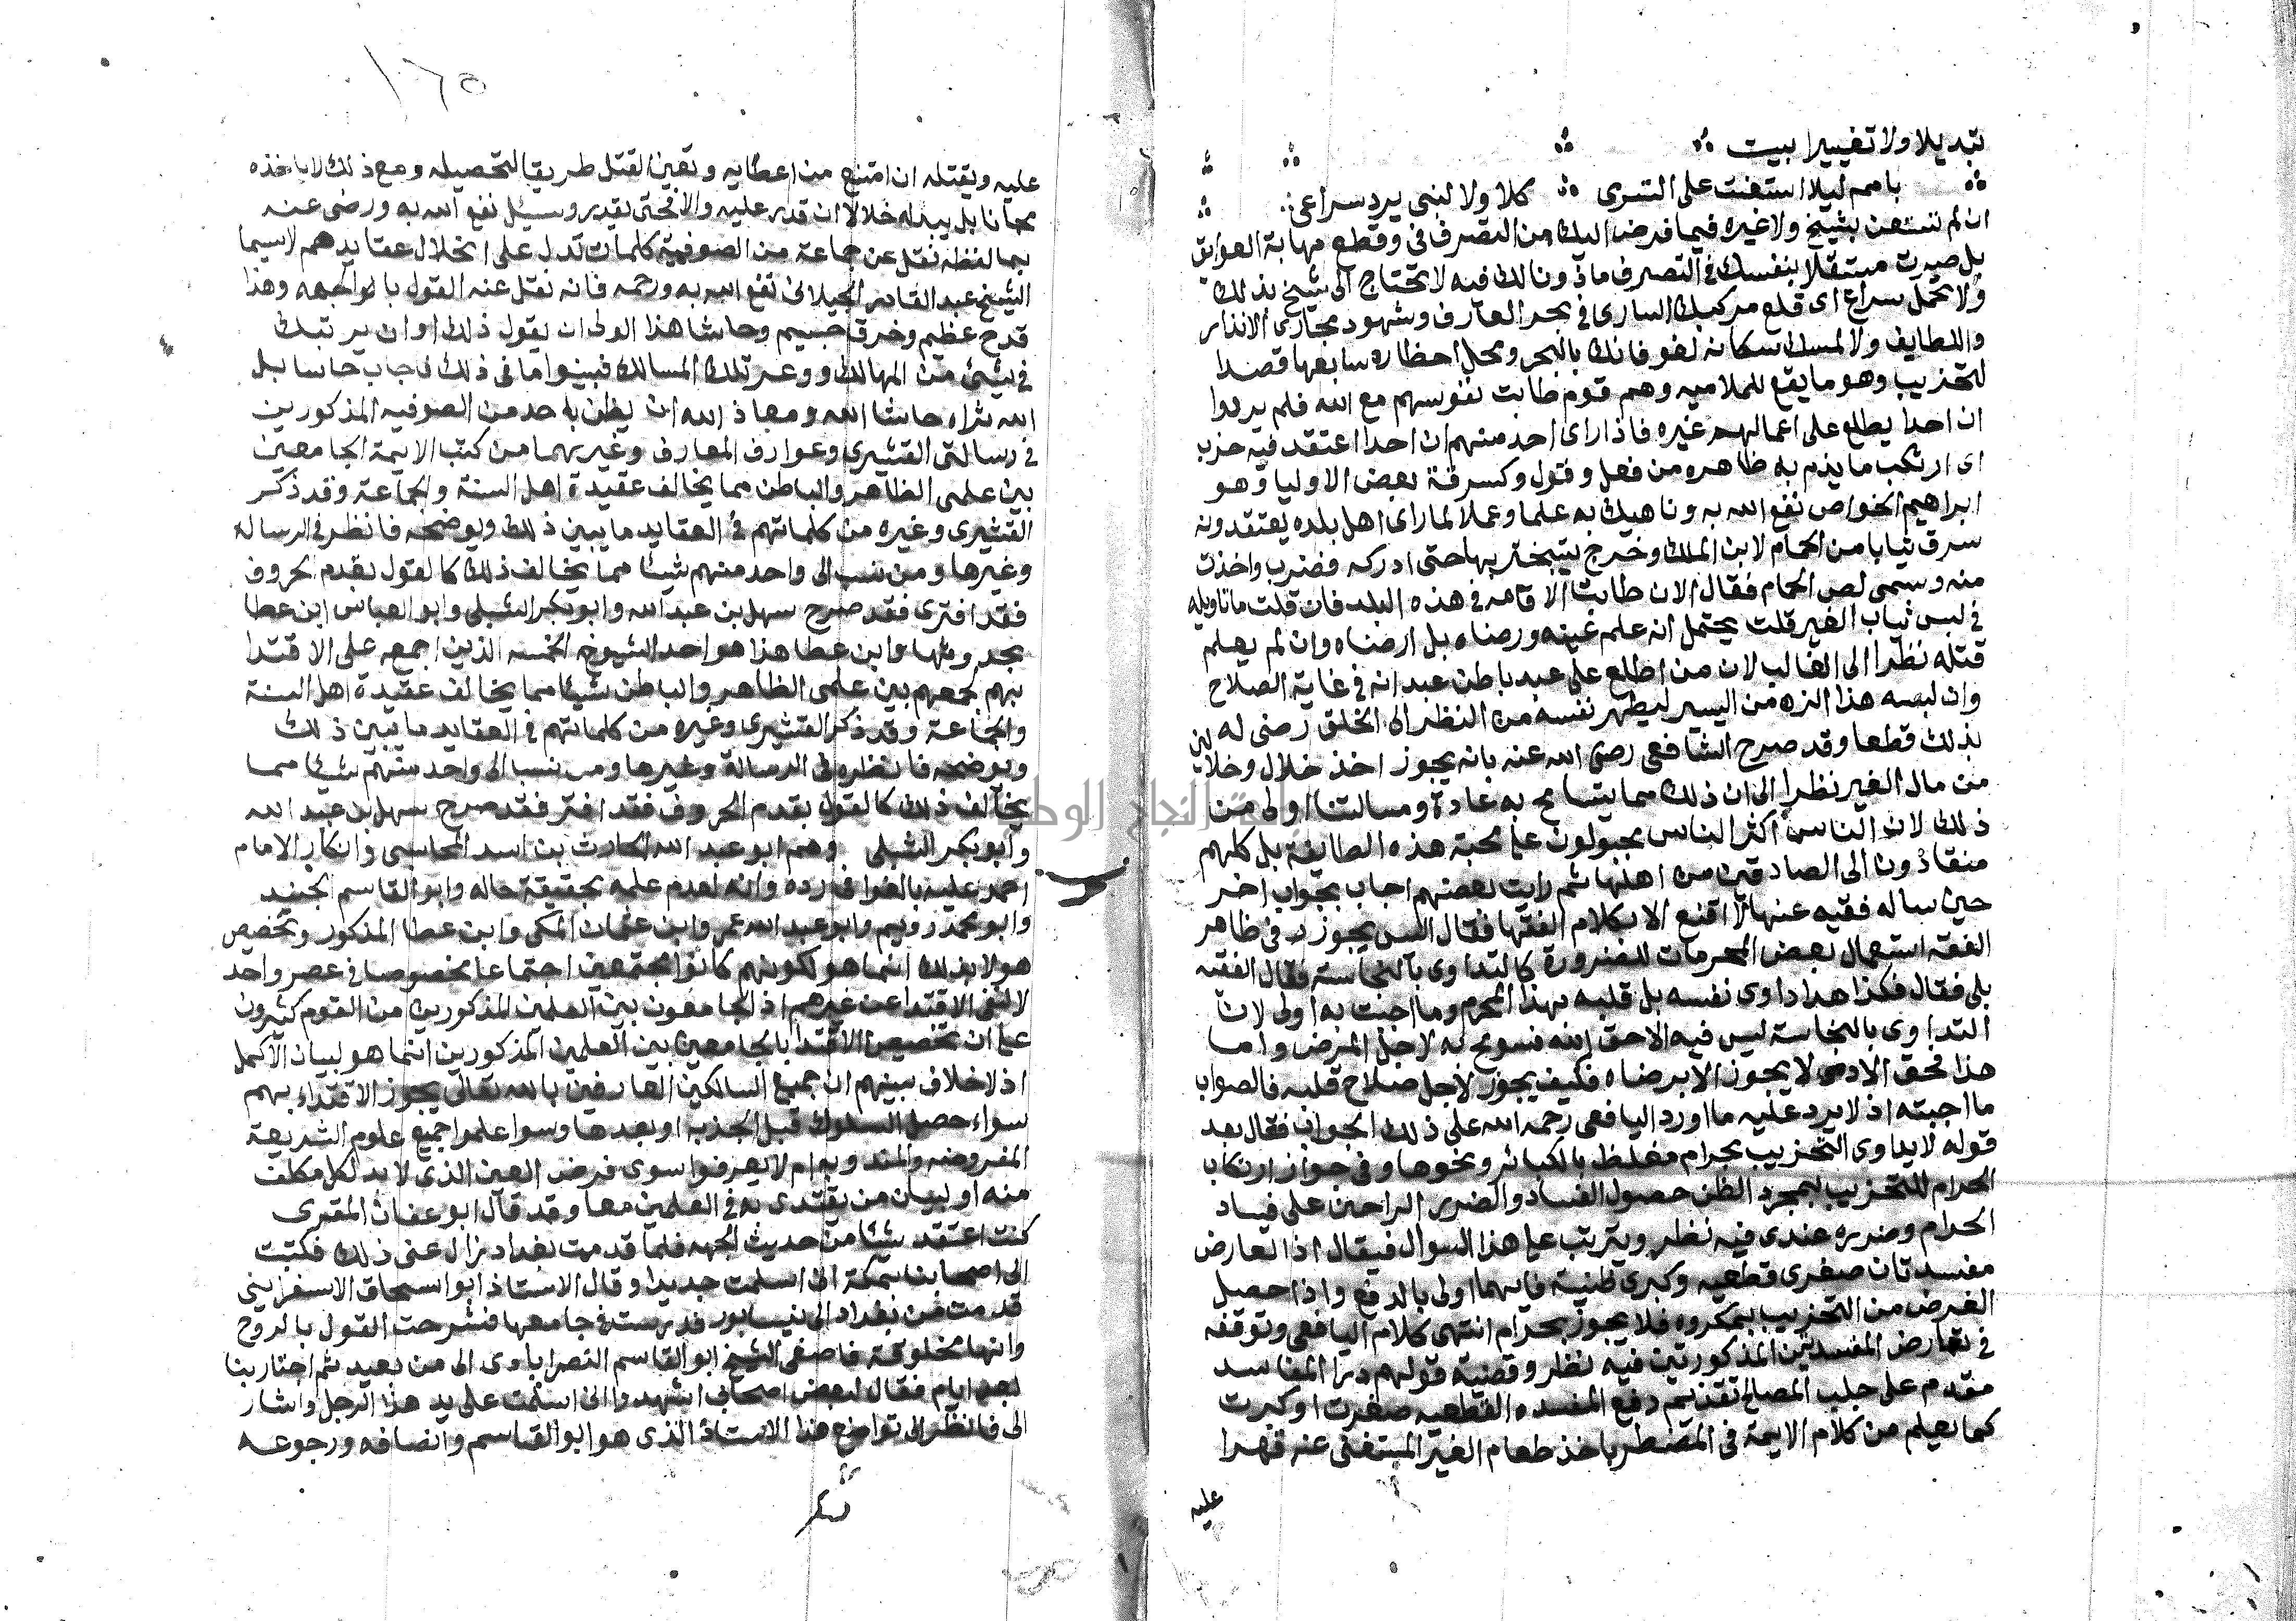 تبديلا ولا تغييرا بيت
يا مم ليلا استعنت على السرى كلا ولا لنبي يرد سراعي
ان لم تستعن بشيخ ولا غيره فيما فرض اليك من التصرف في وقطع مهابة العوايق
بل صرت مستقلا بنفسك في التصرف ماذونا لك فيه لا تحتاج الى شيخ بذلك
ولا تحمل سراع اى قلع مركبك السارى في بحر العارف وشهود مجارى الانذار
واللطايف ولا لمسك سكانه لغو فانك بالبحر ومحل احظاره سابعها قصدا
للتخريب وهو ما يقع للملاميه وهم قوم طابت نفوسهم مع الله فلم يردوا
ان احدا يطلع على اعمالهم غيره فاذا راى احد منهم ان احدا اعتقد فيه خرب
اى ارتكب ما يذم به ظاهره من فعل وقول وكسرقة بعض الاوليا وهو
ابراهيم الخواص نفع الله به وناهيك به علما وعملا لما راى اهل بلده يعتقدونه
سرق ثيابا من الحمام لابن الملك وخرج يتبختر بها حتى ادركه فضرب واخذت
منه وسمى لص الحمام فقال الان طابت الاقامه في هذه البلد فان قلت ما تاويله
في لبس ثياب الغير قلت يحتمل انه علم غيبه ورضاه بل ارضاه وان لم يعلم
قتله نظرا الى الغالب لان من اطلع على عبد باطن عبد انه في غاية الصلاح
وان لبسه هذا النزه من اليسير ليطهر نفسه من النظر الى الخلق رضى له
بذلك قطعا وقد صرح الشافعى رضى الله عنه بانه يجوز اخذ خلال وخلالين
من مال الغير نظرا الى ان ذلك مما يتسامح به عادة ومسالتنا اولى من
ذلك لان الناس اكثر الناس مجبولون على محبة هذه الطايفة بل كلهم
منقادون الى الصادقين من اهلها ثم رايت بعضهم اجاب بجواب اخر
حين ساله فقيه عنها لا اقنع الا بكلام الفقها فقال اليس يجوز في ظاهر
الفقه استعمال بعض المحرمات للضرورة كالتداوى بالنجاسة فقال الفقيه
بلى فقال فكذا هذا داوى نفسه بل قلبه بهذا المحرم وما اجبت به اولى لان
التداوى بالنجاسة ليس فيه الا حق الله فسومح به لاجل المرض واما
هذا فحق الادمى لا يجوز الا برضاه فكيف يجوز لاجل صلاح قلبه فالصواب
ما اجبته اذ لا يرد عليه ما اورد اليافعى رحمه الله على ذلك الجواب فقال بعد
قوله لا يداوى التخريب بحرام مغلظ بالكبائر ونحوها وفى جواز ارتكاب
الحرام للتخريب بمجرد الظن حصول الفساد والضرر الراجحين على فساد
الحرام وضرره عندى فيه نظر ويترتب على هذا السوال فيقال اذا تعارض
مفسدتان صغرى قطعيه وكبرى ظنية فايهما اولى بالدفع واذا حصل
الغرض من التخريب بمكروه فلا يجوز بحرام انتهى كلام اليافعى وتوقفه
في تعارض المفسدتين المذكورتين فيه نظر وقضية قولهم درا المفاسد
مقدم على جلب المصالح تقديم دفع المفسده القطعيه صغرت او كبرت
كما يعلم من كلام الايمة في المضطر ياخذ طعام الغير المستغنى عنه قهرا
عليه
١٦٥
عليه ويقتله ان امتنع من اعطايه وتعين القتل طريقا لتحصيله ومع ذلك لا ياخذه
مجانا بل يبدله حلالا ان قدر عليه والا فحتى يقدر وسيل نفع الله به ورضى عنه
بما لفظه نقل عن جماعة من الصوفية كلمات تدل على انحلال عقايدهم لاسيما
الشيخ عبد القادر الجيلانى نفع الله به ورحمه فانه نقل عنه القول بالواجهه وهذا
قدح عظيم وخرق جسيم وحاشا هذا الولى ان يقول ذلك او ان يرتبك
في شئ من المهالك ووعر تلك المسالك فبينوا ما فى ذلك فاجاب حاسا بل
الله ثراه حاشا الله ومعاذ الله ان يظن باحد من الصوفيه المذكورين
في رسالتى القشيرى وعوارف المعارف وغيرهما من كتب الايمة الجامعين
بين علمى الظاهر والباطن مما يخالف عقيدة اهل السنة والجماعة وقد ذكر
القشيرى وغيره من كلماتهم في العقايد ما يبين ذلك ويوضحه فانظر فى الرساله
وغيرها ومن نسب الى واحد منهم شيئا مما يخالف ذلك كالقول بقدم الحروف
فقد افترى فقد صرح سهل بن عبد الله وابو بكر الشبلى وابو العباس ابن عطا
بحدوثها وابن عطا هذا هو احد الشيوخ الخمسه الذين اجمعه على الاقتدا
بهم لجمعهم بين علمى الظاهر والباطن شيئا مما يخالف عقيدة اهل السنة
والجماعة وقد ذكر القشيرى وغيره من كلماتهم في العقايد ما يبين ذلك
ويوضحه فانظره فى الرسالة وغيرها ومن نسب الى واحد منهم شيئا مما
يخالف ذلك كالقول بقدم الحروف فقد افتر فقد صرح سهل بن عبد الله
وابو بكر الشبلى وهم ابو عبد الله الحارث بن اسد المحاسبى وانكار الامام
احمد عليه بالغوا فى رده وانه لعدم علمه بحقيقة حاله وابو القاسم الجنيد
وابو محمد رويم وابو عبد الله عمر وابن عثمان المكى وابن عطا المذكور وتخصيص
هولا بذلك انما هو لكونهم كانوا مجتمعين اجتماعا مخصوصا فى عصر واحد
لا لنفى الاقتدا عن غيرهم اذ الجامعون بين العلمين المذكورين من القوم كثيرون
على ان تخصيص الاقتدا بالجامعين بين العلمين المذكورين انما هو لبيان الاكمل
اذ لا خلاف بينهم ان جميع السالكين العارفين بالله تعالى يجوز الاقتداء بهم
سواء حصل السلوك قبل الجذبه او بعدها وسوا علموا جميع علوم الشريعة
المفروضه والمندوبه ام لا يعرفوا سوى فرض العين الذى لا بد لكل مكلف
منه او لبيان من يقتدى به في العلمين معا وقد قال ابو عثمان المقرى
كنت اعتقد شيئا من حديث الجهه فلما قدمت بغداد زال عنى ذلك فكتبت
الى اصحابنا بمكة انى اسلمت جديدا وقال الاستاذ ابو اسحاق الاسفراينى
قدمت من بغداد الى نيسابور فدرست فى جامعها فشرحت القول بالروح
وانها مخلوقة فاصغى الشيخ ابو القاسم النصراباذى الى من بعيد ثم اجتاز بنا
بعد ايام فقال لبعض اصحابى اشهدوا انى اسلمت على يد هذا الرجل واشار
الى فانظر الى تواضع هذا الاستاذ الذى هو ابو القاسم وانصافه ورجوعه